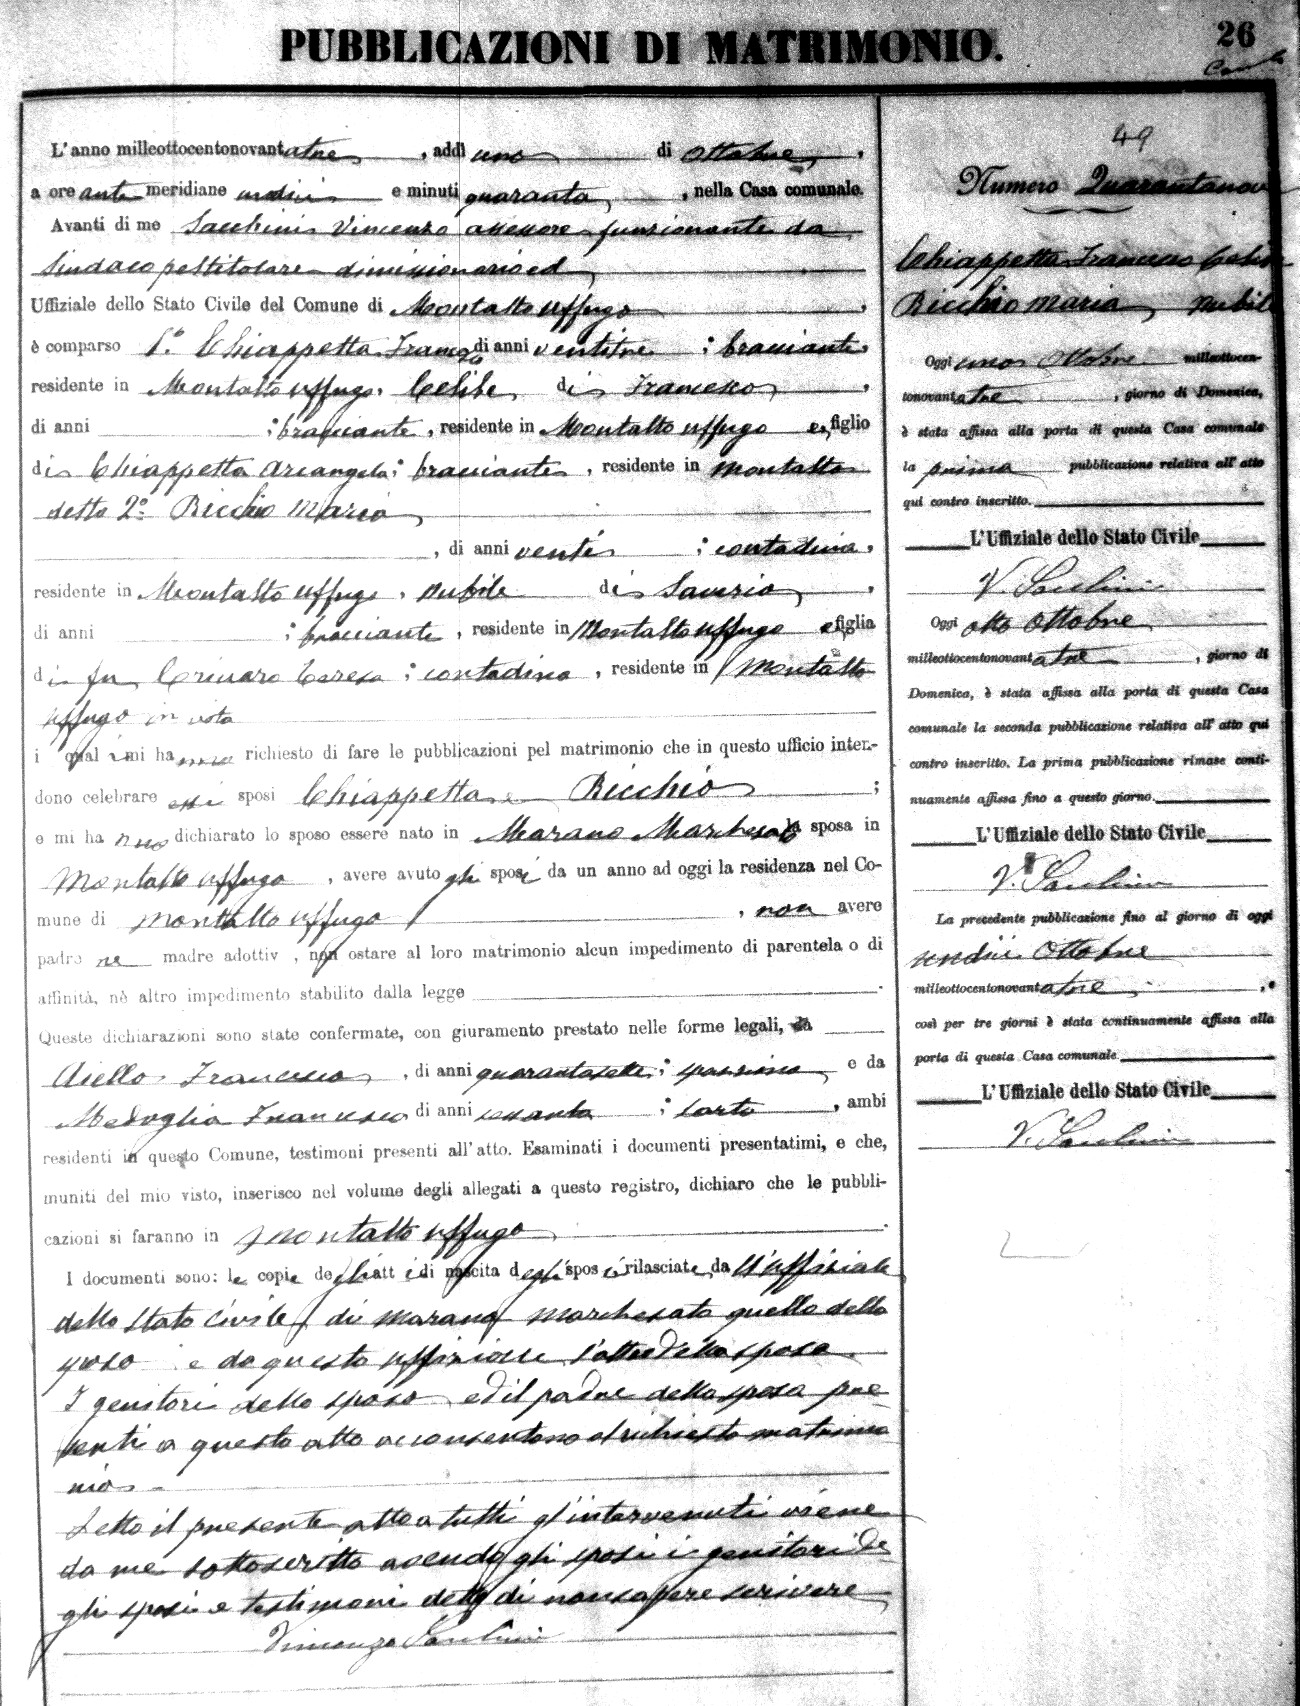 PUBBLICAZIONI DI MATRIMONIO.
26
L'anno milleottocentonovantatre, addì uno di Ottobre,
a ore ante meridiane undici e minuti quaranta, nella Casa comunale.
Avanti di me Sacchini Vincenzo assessore funzionante da
Sindaco pel titolare dimissionario ed
Uffiziale dello Stato Civile del Comune di Montalto Uffugo,
è comparso 1.º Chiappetta Francesco di anni ventitre; bracciante,
residente in Montalto Uffugo, Celibe di Francesco,
di anni ; bracciante, residente in Montalto Uffugo e figlio
di Chiappetta Arcangela; bracciante, residente in Montalto
detto 2º Ricchio Maria
, di anni venti ; contadina,
residente in Montalto Uffugo, nubile di Saverio,
di anni ; bracciante, residente in Montalto Uffugo e figlia
di fu Crivaro Teresa; contadina, residente in Montalto
Uffugo in vita
i quali mi hanno richiesto di fare le pubblicazioni pel matrimonio che in questo ufficio inten-
dono celebrare essi sposi Chiappetta e Ricchio ;
e mi hanno dichiarato lo sposo essere nato in Marano Marchesato la sposa in
Montalto Uffugo, avere avuto gli sposi da un anno ad oggi la residenza nel Co-
mune di Montalto Uffugo, non avere
padre nè madre adottiv , non ostare al loro matrimonio alcun impedimento di parentela o di
affinità, nè altro impedimento stabilito dalla legge .
Queste dichiarazioni sono state confermate, con giuramento prestato nelle forme legali, da
Aiello Francesco, di anni quarantasette; e da
Francesco di anni sessanta ; sarto, ambi
residenti in questo Comune, testimoni presenti all'atto. Esaminati i documenti presentatimi, e che,
muniti del mio visto, inserisco nel volume degli allegati a questo registro, dichiaro che le pubbli-
cazioni si faranno in Montalto Uffugo.
I documenti sono: le copie degli atti di nascita degli sposi rilasciate da ll'uffiziale
dello Stato Civile di Marano Marchesato quello dello
sposo e da questo uffiziale l'atto della sposa.
I genitori dello sposo ed il padre della sposa pre
senti a questo atto acconsentono al richiesto matrimo
nio.
Letto il presente atto a tutti gl'intervenuti viene
da me sottoscritto avendo gli sposi i genitori de
gli sposi e testimoni detto di non sapere scrivere
Vincenzo Sacchini
49
Numero Quarantanove
Chiappetta Francesco Celibe
Ricchio Maria, nubile
Oggi uno Ottobre milleottocen-
tonovantatre, giorno di Domenica,
è stata affissa alla porta di questa Casa comunale
la prima pubblicazione relativa all'atto
qui contro inscritto.
L'Uffiziale dello Stato Civile
V. Sacchini
Oggi otto Ottobre
milleottocentonovantatre, giorno di
Domenica, è stata affissa alla porta di questa Casa
comunale la seconda pubblicazione relativa all'atto qui
contro inscritto. La prima pubblicazione rimase conti-
nuamente affissa fino a questo giorno.
L'Uffiziale dello Stato Civile
V. Sacchini
La precedente pubblicazione fino al giorno di oggi
undici Ottobre
milleottocentonovantatre, e
così per tre giorni è stata continuamente affissa alla
porta di questa Casa comunale.
L'Uffiziale dello Stato Civile
V. Sacchini